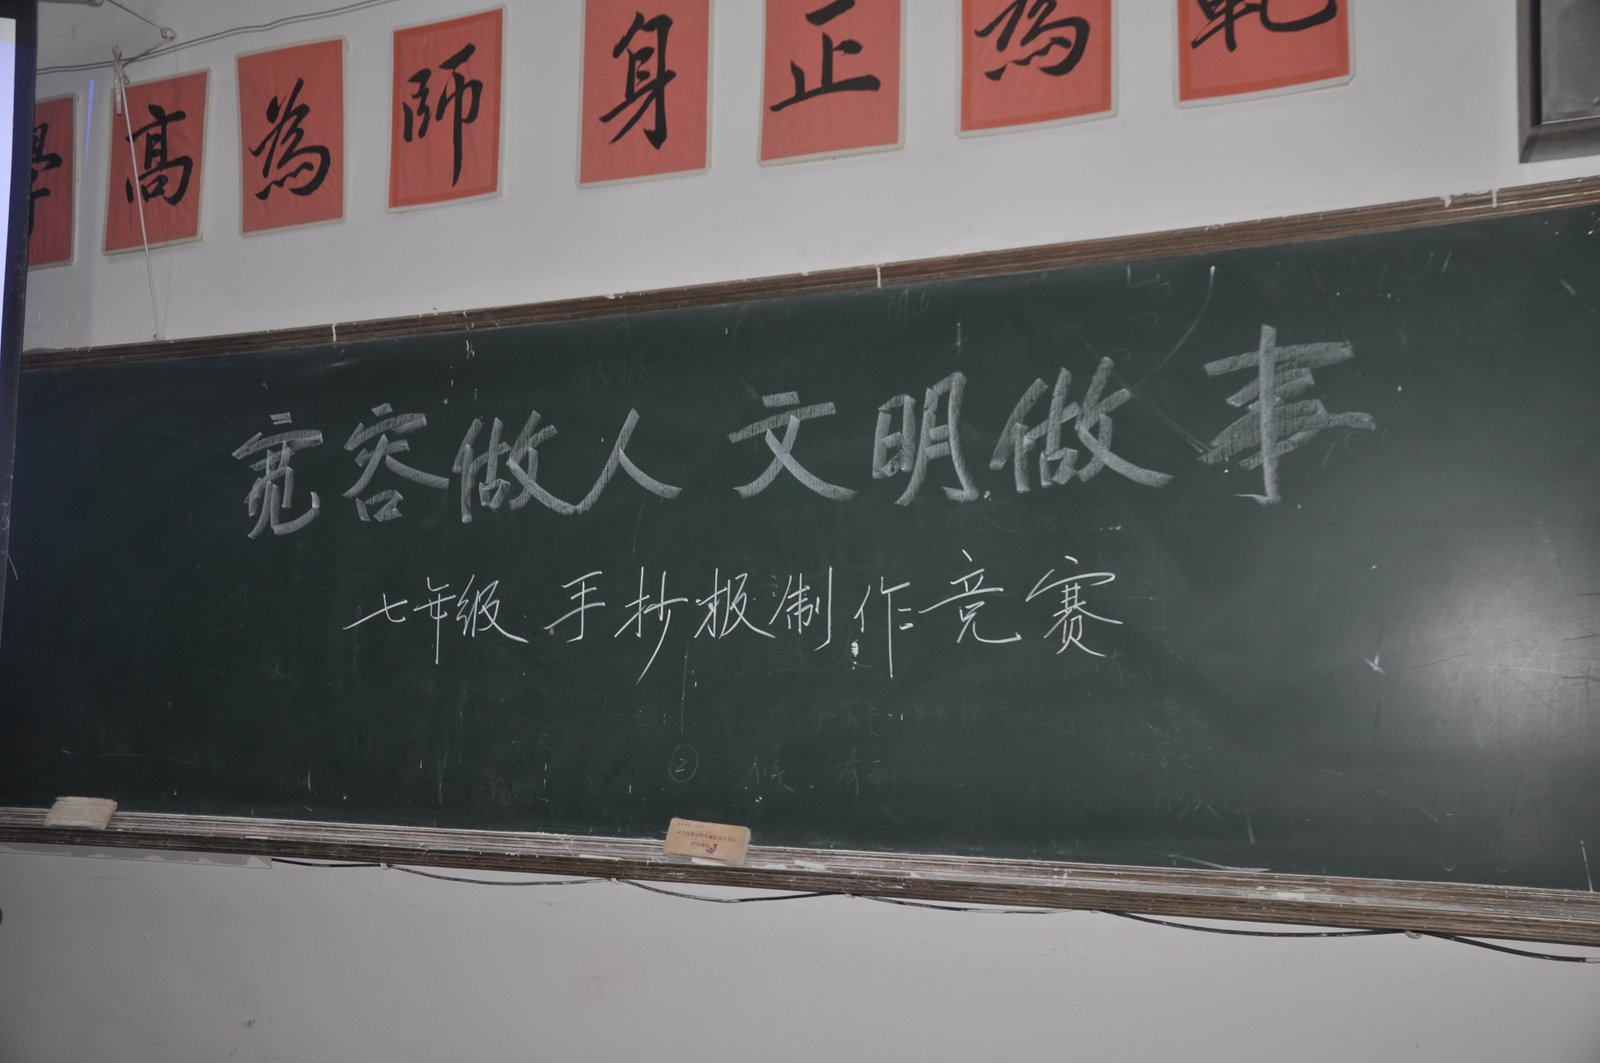 學高為師身正為範
宽容做人 文明做事
七年级 手抄报制作竞赛
②